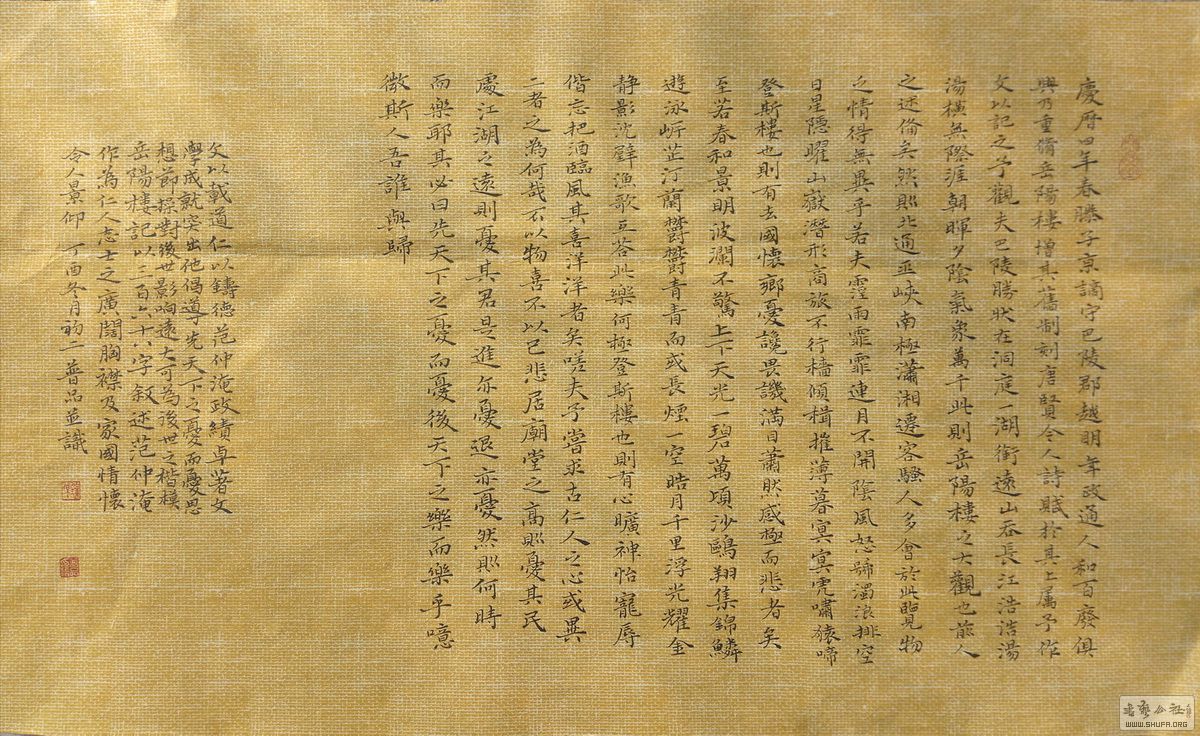 慶曆四年春滕子京謫守巴陵郡越明年政通人和百廢俱
興乃重脩岳陽樓增其舊制刻唐賢今人詩賦於其上属予作
文以記之予觀夫巴陵勝狀在洞庭一湖銜遠山吞長江浩浩湯
湯橫無際涯朝暉夕陰氣象萬千此則岳陽樓之大觀也前人
之述備矣然則北通巫峽南極瀟湘遷客騷人多會於此覽物
之情得無異乎若夫霪雨霏霏連月不開陰風怒號濁浪排空
日星隱曜山嶽潛形商旅不行檣傾楫摧薄暮冥冥虎嘯猿啼
登斯樓也則有去國懷鄉憂讒畏譏滿目蕭然感極而悲者矣
至若春和景明波瀾不驚上下天光一碧萬頃沙鷗翔集錦鱗
遊泳岸芷汀蘭欝欝青青而或長煙一空皓月千里浮光耀金
静影沈璧漁歌互答此樂何極登斯樓也則有心曠神怡寵辱
偕忘把酒臨風其喜洋洋者矣嗟夫予嘗求古仁人之心或異
二者之為何哉不以物喜不以己悲居廟堂之高則憂其民
處江湖之遠則憂其君是進亦憂退亦憂然則何時
而樂耶其必曰先天下之憂而憂後天下之樂而樂乎噫
微斯人吾誰與歸
文以載道仁以鑄德范仲淹政績卓著文
學成就突出他倡導先天下之憂而憂思
想節操對後世影响遠大可為後世之楷模
岳陽樓記以三百六十六字敘述范仲淹
作為仁人志士之廣闊胸襟及家國情懷
令人景仰 丁酉冬月初二普品並識
書法公社
WWW.SHUFA.ORG